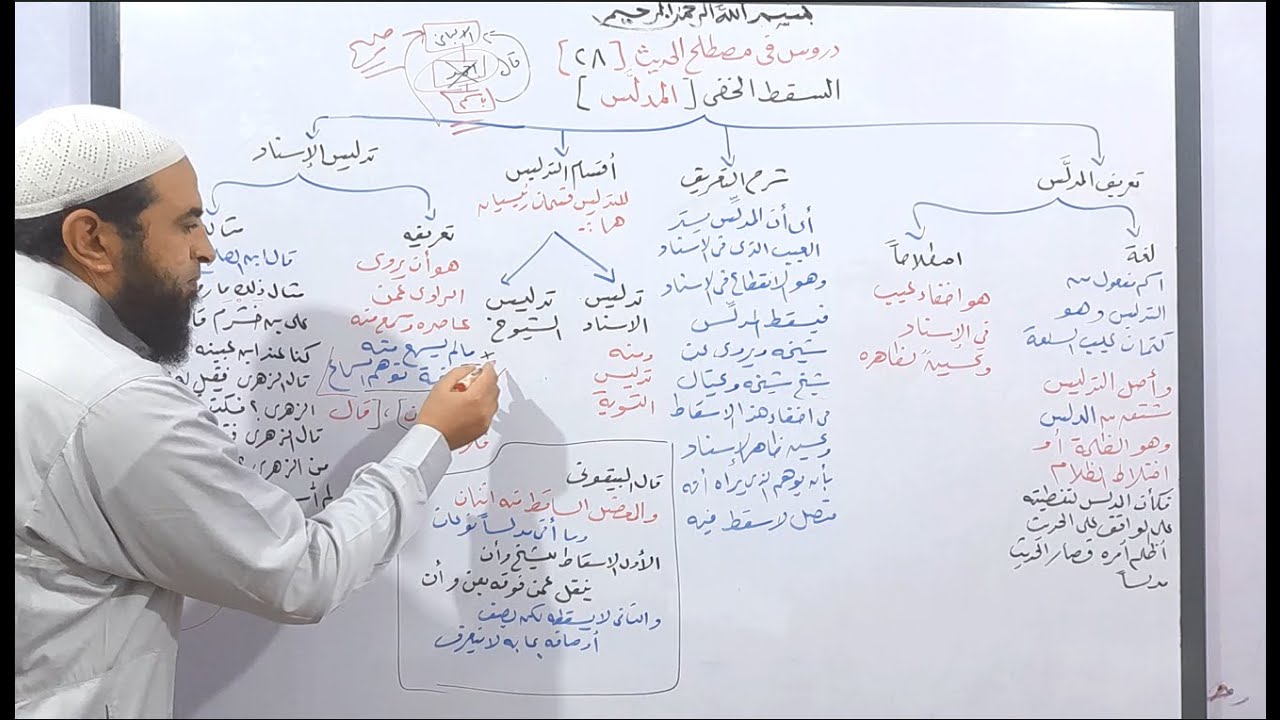 بسم الله الرحمن الرحيم
دروس في مصطلح الحديث [٢٨]
السقط الخفي [المدلَّس]
صحيح
الألباني
قال
أحمد
تعريف المدلَّس
لغة
اسم مفعول من
التدليس وهو
كتمان عيب السلعة
وأصل التدليس
مشتق من الدلس
وهو الظلمة أو
اختلاط الظلام
فكأن المدلس لتغطيته
على الواقف على الحديث
أظلم أمره فصار الحديث
مدلساً
اصطلاحاً
هو اخفاء عيب
في الإسناد
وتحسينٌ لظاهره
شرح التعريف
أي أن المدلِّس يستر
العيب الذي في الاسناد
وهو الانقطاع في الاسناد
فيسقط المدلِّس
شيخه ويروي عن
شيخ شيخه ويحتال
في اخفاء هذا الاسقاط
ويحسن ظاهر الإسناد
بأن يوهم الذي يراه أنه
متصل لا سقط فيه
أقسام التدليس
للتدليس قسمان رئيسيان
هما :-
تدليس
الاسناد
ومنه
تدليس
التسوية
تدليس
الشيوخ
تدليس الإسناد
تعريفه
هو أن يروي
الراوي عمن
عاصره وسمع منه
مالم يسمع منه
توهم السماع
[قال
مثال
قال ابن
مثال ذلك ما
علي بن خشرم
كنا عند ابن عيينة
قال الزهري فقيل له
الزهري؟ فسكت
قال الزهري
من الزهري؟
لم
قال البيقوني
والمعضل الساقط منه اثنان
وما أتى مدلساً نوعان
الأول الاسقاط للشيخ وأن
ينقل عمن فوقه بعن وأن
والثاني لا يسقطه لكن يصف
أوصافه بما به لا ينعرف